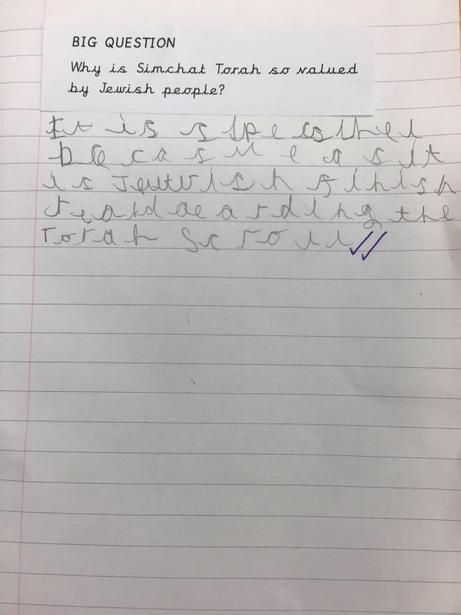 BIG QUESTION
Why is Simchat Torah so valued
by Jewish people?
It is
becasue as it
is Jewish finish
the
Torah Scroll